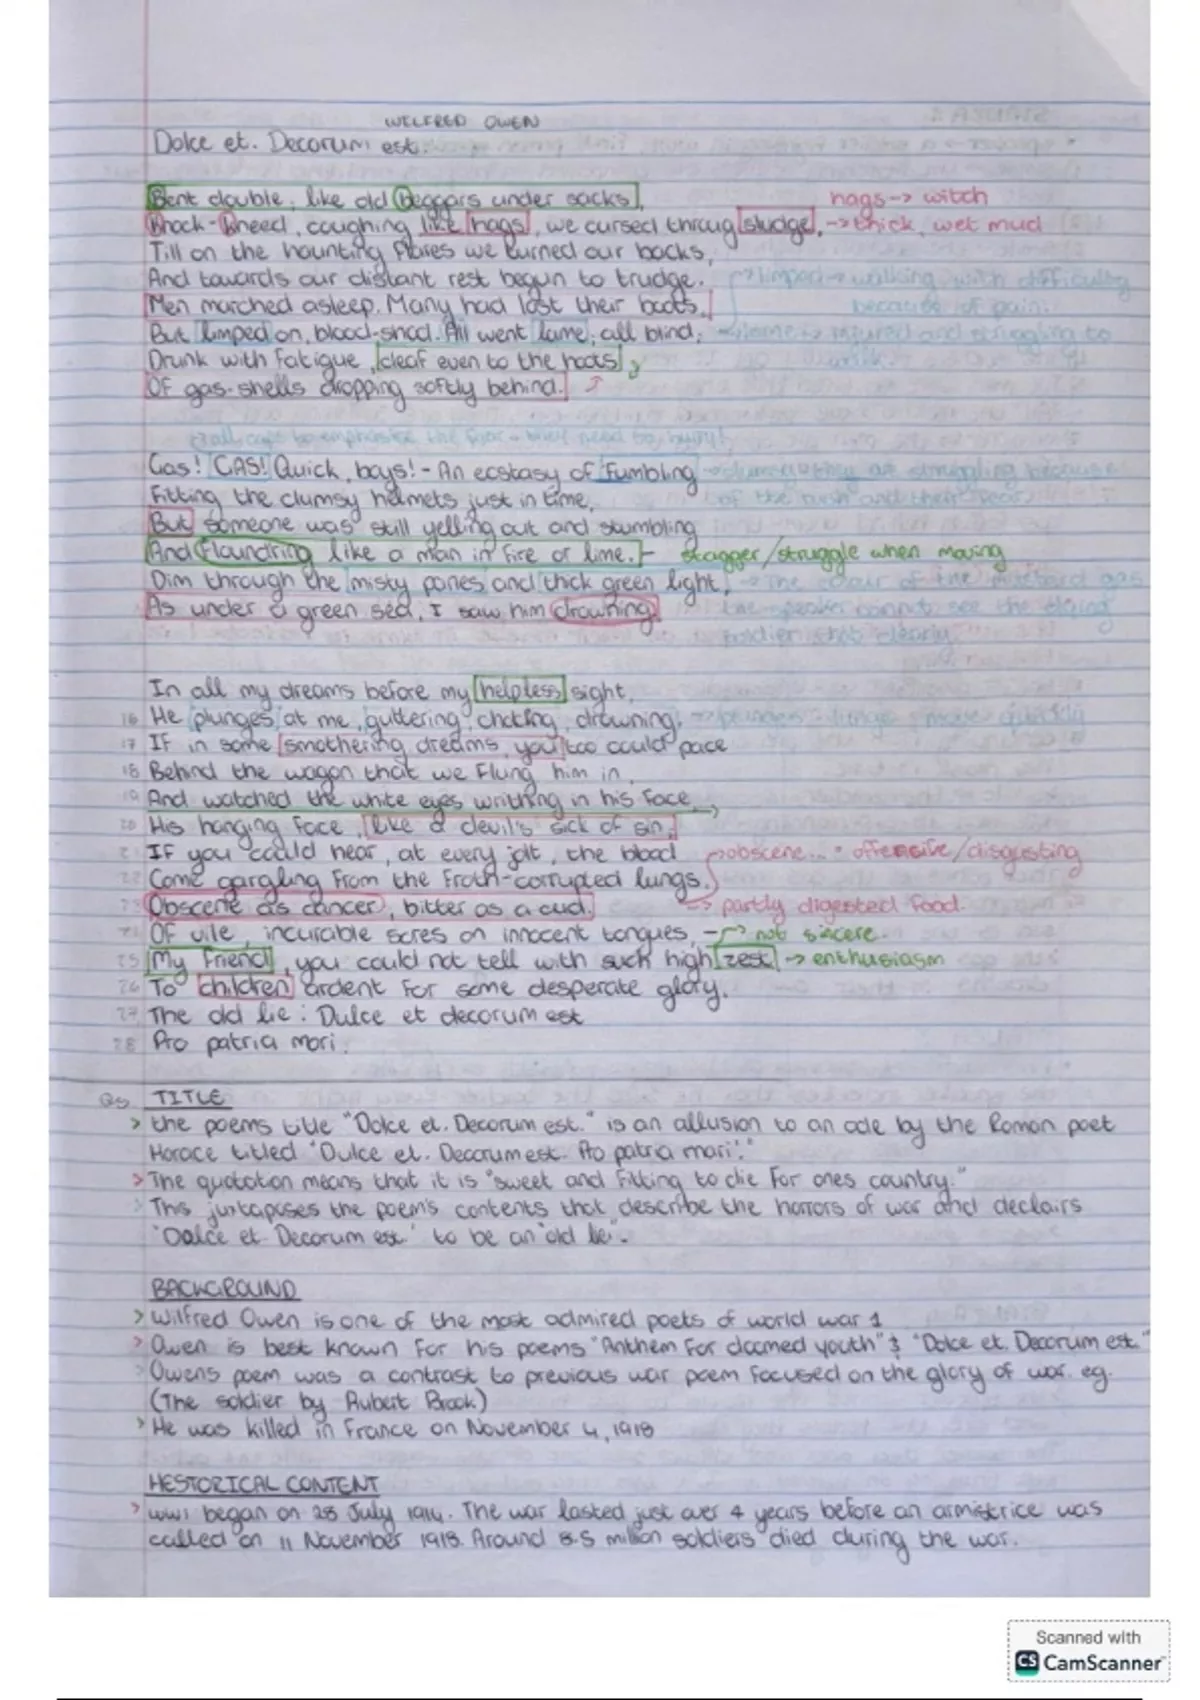 WELFRED OWEN
Dolce et. Decorum est.
Bent double, like old Beggars under sacks,
hags -> witch
Knock-Kneed, coughing like hags, we cursed throug sludge, -> thick, wet mud
Till on the haunting flares we turned our backs,
And towards our distant rest begun to trudge.
limped -> walking with difficulty
Men marched asleep. Many had lost their boots.
because of pain.
But limped on, blood-shod. All went lame; all blind;
lame -> injured and struggling to
Drunk with fatigue, deaf even to the hoots
walk.
OF gas-shells dropping softly behind.
all caps to emphasise the fear -
Gas! GAS! Quick, boys! - An ecstasy of Fumbling
struggling because
Fitting the clumsy helmets just in time,
of the rush and their fear.
But someone was still yelling out and stumbling
And Floundring like a man in fire or lime. - stagger/struggle when moving
Dim through the misty panes and thick green light, -> The colour of the mustard gas
As under a green sea, I saw him drowning.
the speaker cannot see the dying
soldier clearly.
In all my dreams before my helpless sight,
16 He plunges at me, guttering, choking, drowning.
17 IF in some smothering dreams, you too could pace
18 Behind the wagon that we Flung him in,
19 And watched the white eyes writhing in his face,
20 His hanging face, like a devil's sick of sin,
21 IF you could hear, at every jolt, the blood
obscene... offensive/disgusting
22 Come gargling From the Froth-corrupted lungs.
23 Obscene as cancer, bitter as a cud.
-> partly digested food.
24 OF vile, incurable sores on innocent tongues, - -> not sincere.
25 My Friend, you could not tell with such high zest -> enthusiasm
26 To children ardent for some desperate glory.
27 The old lie: Dulce et decorum est
28 Pro patria mori.
Qs TITLE
> the poems title "Dolce et. Decorum est." is an allusion to an ode by the Roman poet
Horace titled "Dulce et. Decorum est. Pro patria mori."
> The quotation means that it is "sweet and fitting to die for ones country."
> This juxtaposes the poem's contents that describe the horrors of war and declairs
"Dolce et. Decorum est." to be an "old lie".
BACKGROUND
> Wilfred Owen is one of the most admired poets of world war 1
> Owen is best known for his poems "Anthem For doomed youth" & "Dolce et. Decorum est."
> Owens poem was a contrast to previous war poem focused on the glory of war. eg.
(The soldier by Rubert Brook)
> He was killed in France on November 4, 1918
HESTORICAL CONTENT
> WW1 began on 28 July 1914. The war lasted just over 4 years before an armistrice was
called on 11 November 1918. Around 8.5 million soldiers died during the war.
Scanned with
CS CamScanner